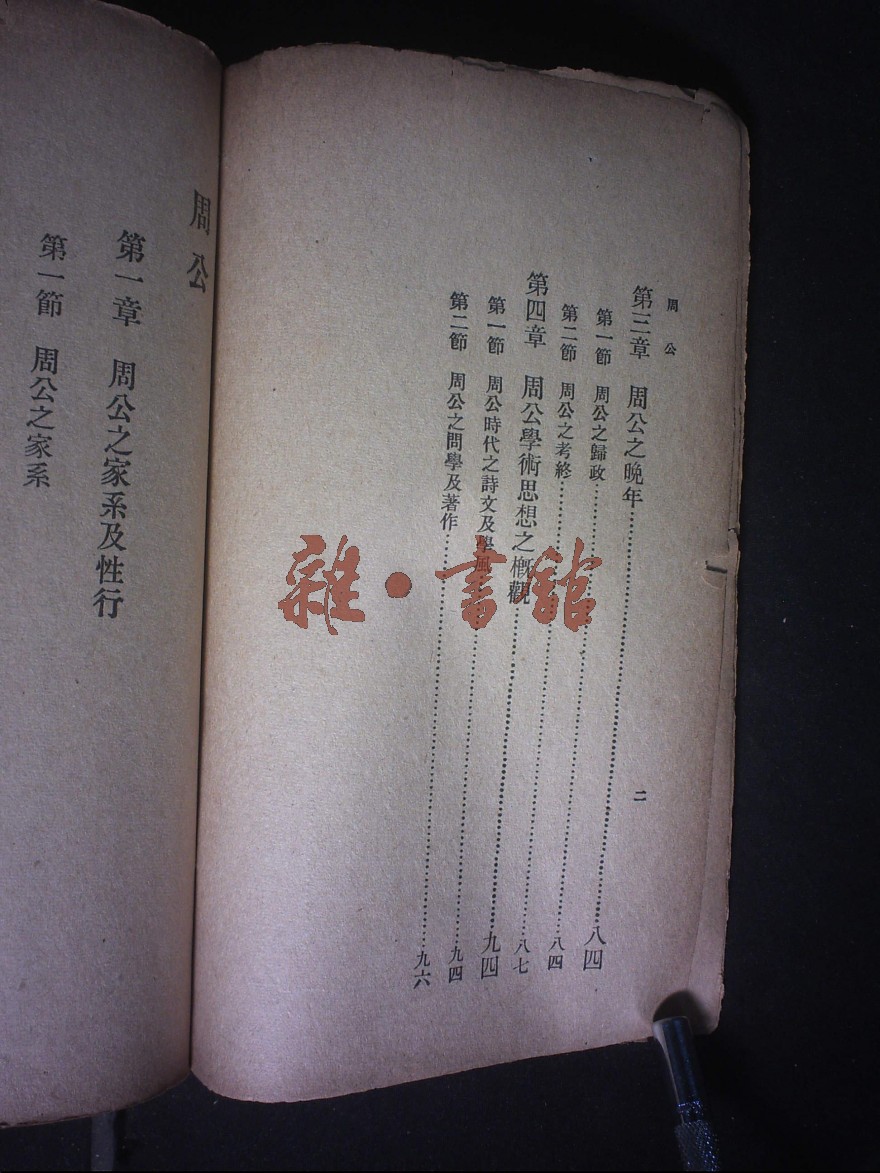 周公
二
第三章 周公之晚年……八四
第一節 周公之歸政……八四
第二節 周公之考終……八七
第四章 周公學術思想之概觀……九四
第一節 周公時代之詩文及學風……九四
第二節 周公之問學及著作……九六
周公
第一章 周公之家系及性行
第一節 周公之家系
雜·書館